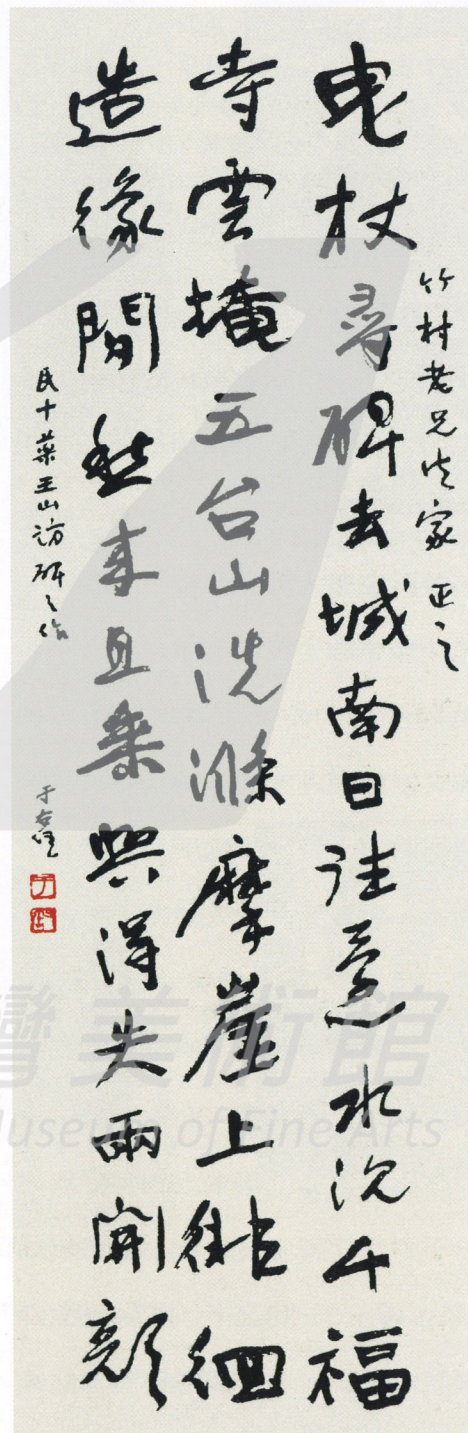 竹村老兄法家 正之
曳杖尋碑去城南日往還水沉千福
寺雲掩五台山洗滌摩崖上徘徊
造像間愁來且乘興得失兩開顏
民十藥王山訪碑之作
于右任
灣美術館
Museum of Fine Arts